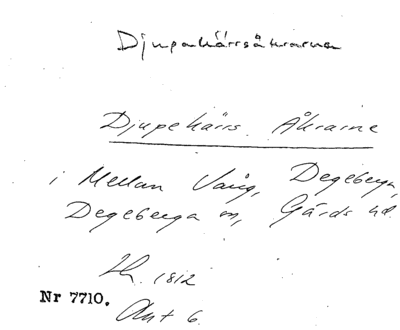 Djupakärrsåkrarna
Djupekärrs Åkrarne
i Mellan Vång, Degeberga,
Degeberga sn, Gärds hd.
1812
Nr 7710.
Akt 6.